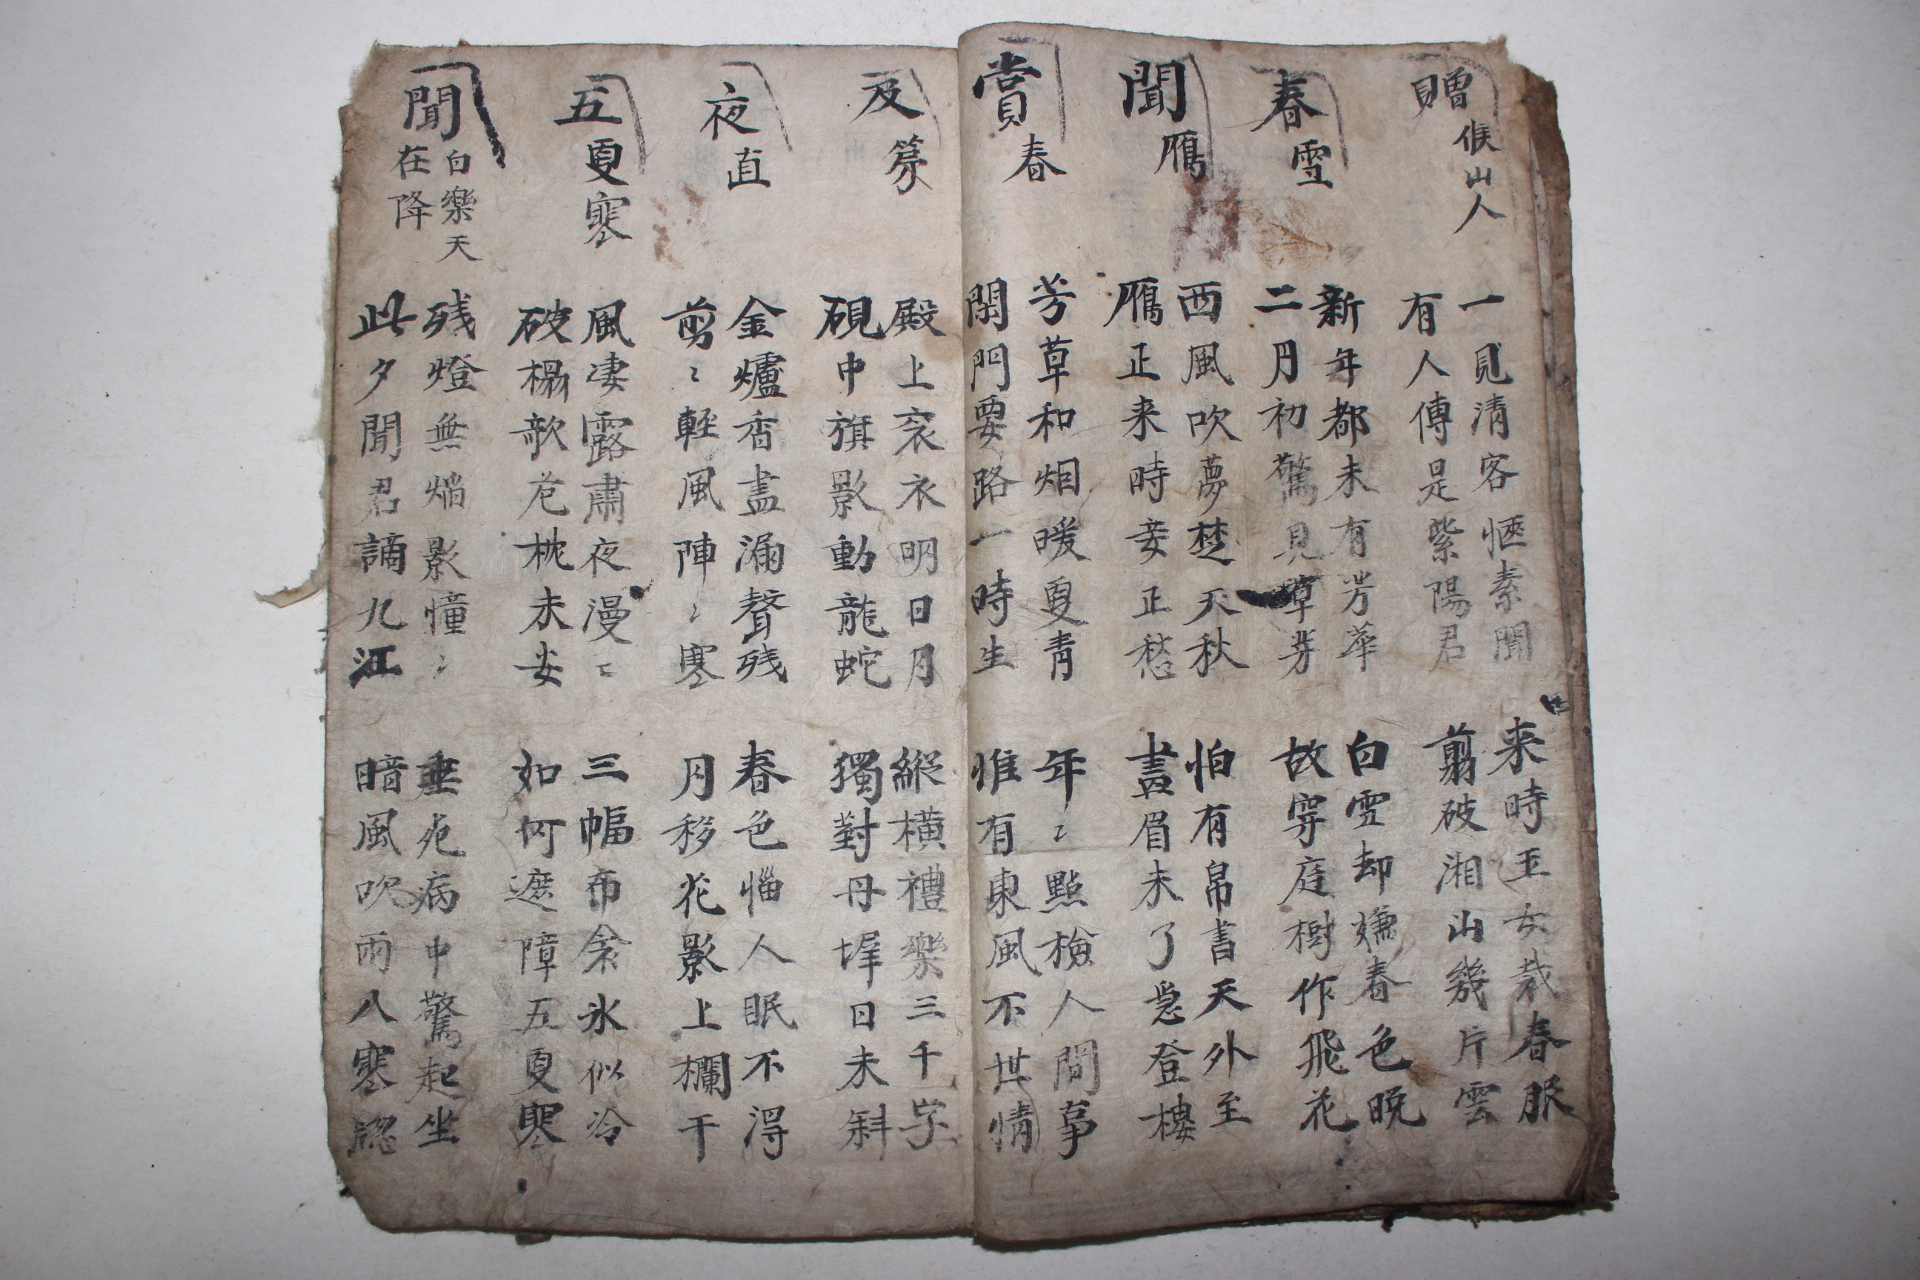 贈候山人
一見清客愜素聞
有人傳是紫陽君
来時玉女裁春服
剪破湘山幾片雲
春雪
新年都未有芳華
二月初驚見草芽
白雪却嫌春色晚
故穿庭樹作飛花
聞鴈
西風吹夢楚天秋
鴈正来時妾正愁
怕有帛書天外至
畫眉未了急登樓
賞春
芳草和烟暖更青
閑門要路一時生
年〻點檢人間事
惟有東風不世情
及第
殿上衮衣明日月
硯中旗影動龍蛇
縱橫禮樂三千字
獨對丹墀日未斜
夜直
金爐香盡漏聲残
剪〻輕風陣〻寒
春色惱人眠不得
月移花影上欄干
五更寒
風凄露肅夜漫〻
破榻欹危枕未安
三幅布衾氷似冷
如何遮障五更寒
聞白樂天在降
残燈無焰影憧〻
此夕聞君謫九江
垂死病中驚起坐
暗風吹雨入寒窓